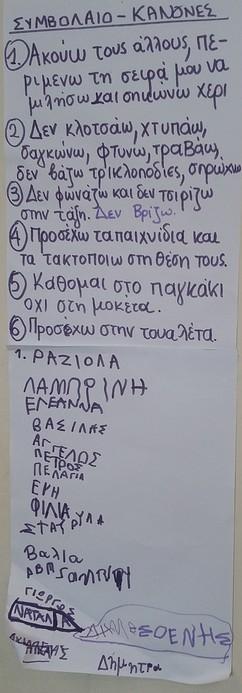 ΣΥΜΒΟΛΑΙΟ - ΚΑΝΟΝΕΣ
1. Ακούω τους άλλους, πε-
ριμένω τη σειρά μου να
μιλήσω και σηκώνω χέρι
2. Δεν κλοτσάω, χτυπάω,
δαγκώνω, φτύνω, τραβάω,
δεν βάζω τρικλοποδιές, σπρώχνω
3. Δεν φωνάζω και δεν τσιρίζω
στην τάξη. Δεν βρίζω.
4. Προσέχω τα παιχνίδια και
τα τακτοποιώ στη θέση τους.
5. Κάθομαι στο παγκάκι
όχι στη μοκέτα.
6. Προσέχω στην τουαλέτα.
1. ΡΑΖΙΟΛΑ
ΛΑΜΠΡΙΝΗ
ΕΛΕΑΝΝΑ
ΒΑΣΙΛΗΣ
ΑΓΓΕΛΟΣ
ΠΕΤΡΟΣ
ΠΕΛΑΓΙΑ
ΕΥΗ
ΦΙΛΙΑ
ΣΤΑΥΡΥΛΑ
Βαλια
ΓΙΩΡΓΟΣ
ΝΑΤΑΛΙΑ
ΔΗΜΟΣΘΕΝΗΣ
Δήμητρα